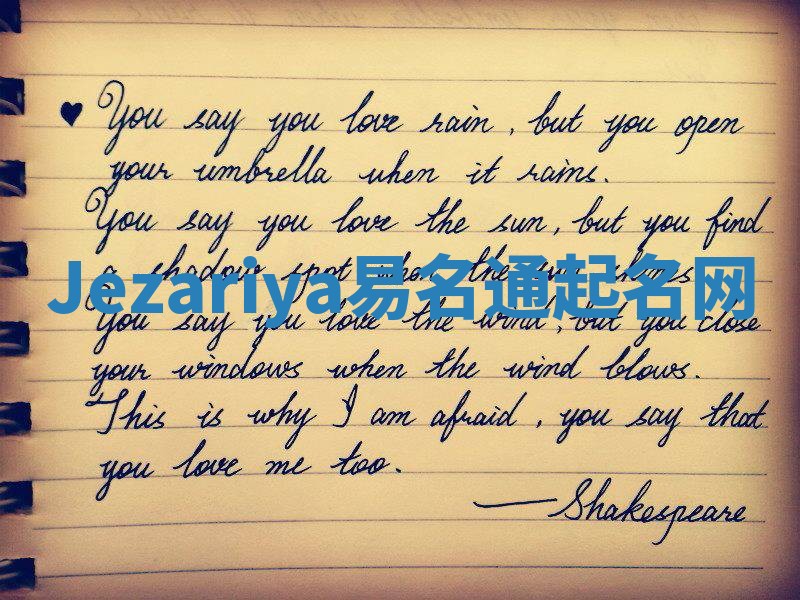 ♥ You say you love rain, but you open
your umbrella when it rains.
You say you love the sun, but you find
a shadow spot when the sun shines
Jezariya易名通起名网
You say you love the wind, but you close
your windows when the wind blows.
This is why I am afraid, you say that
you love me too.
—Shakespeare